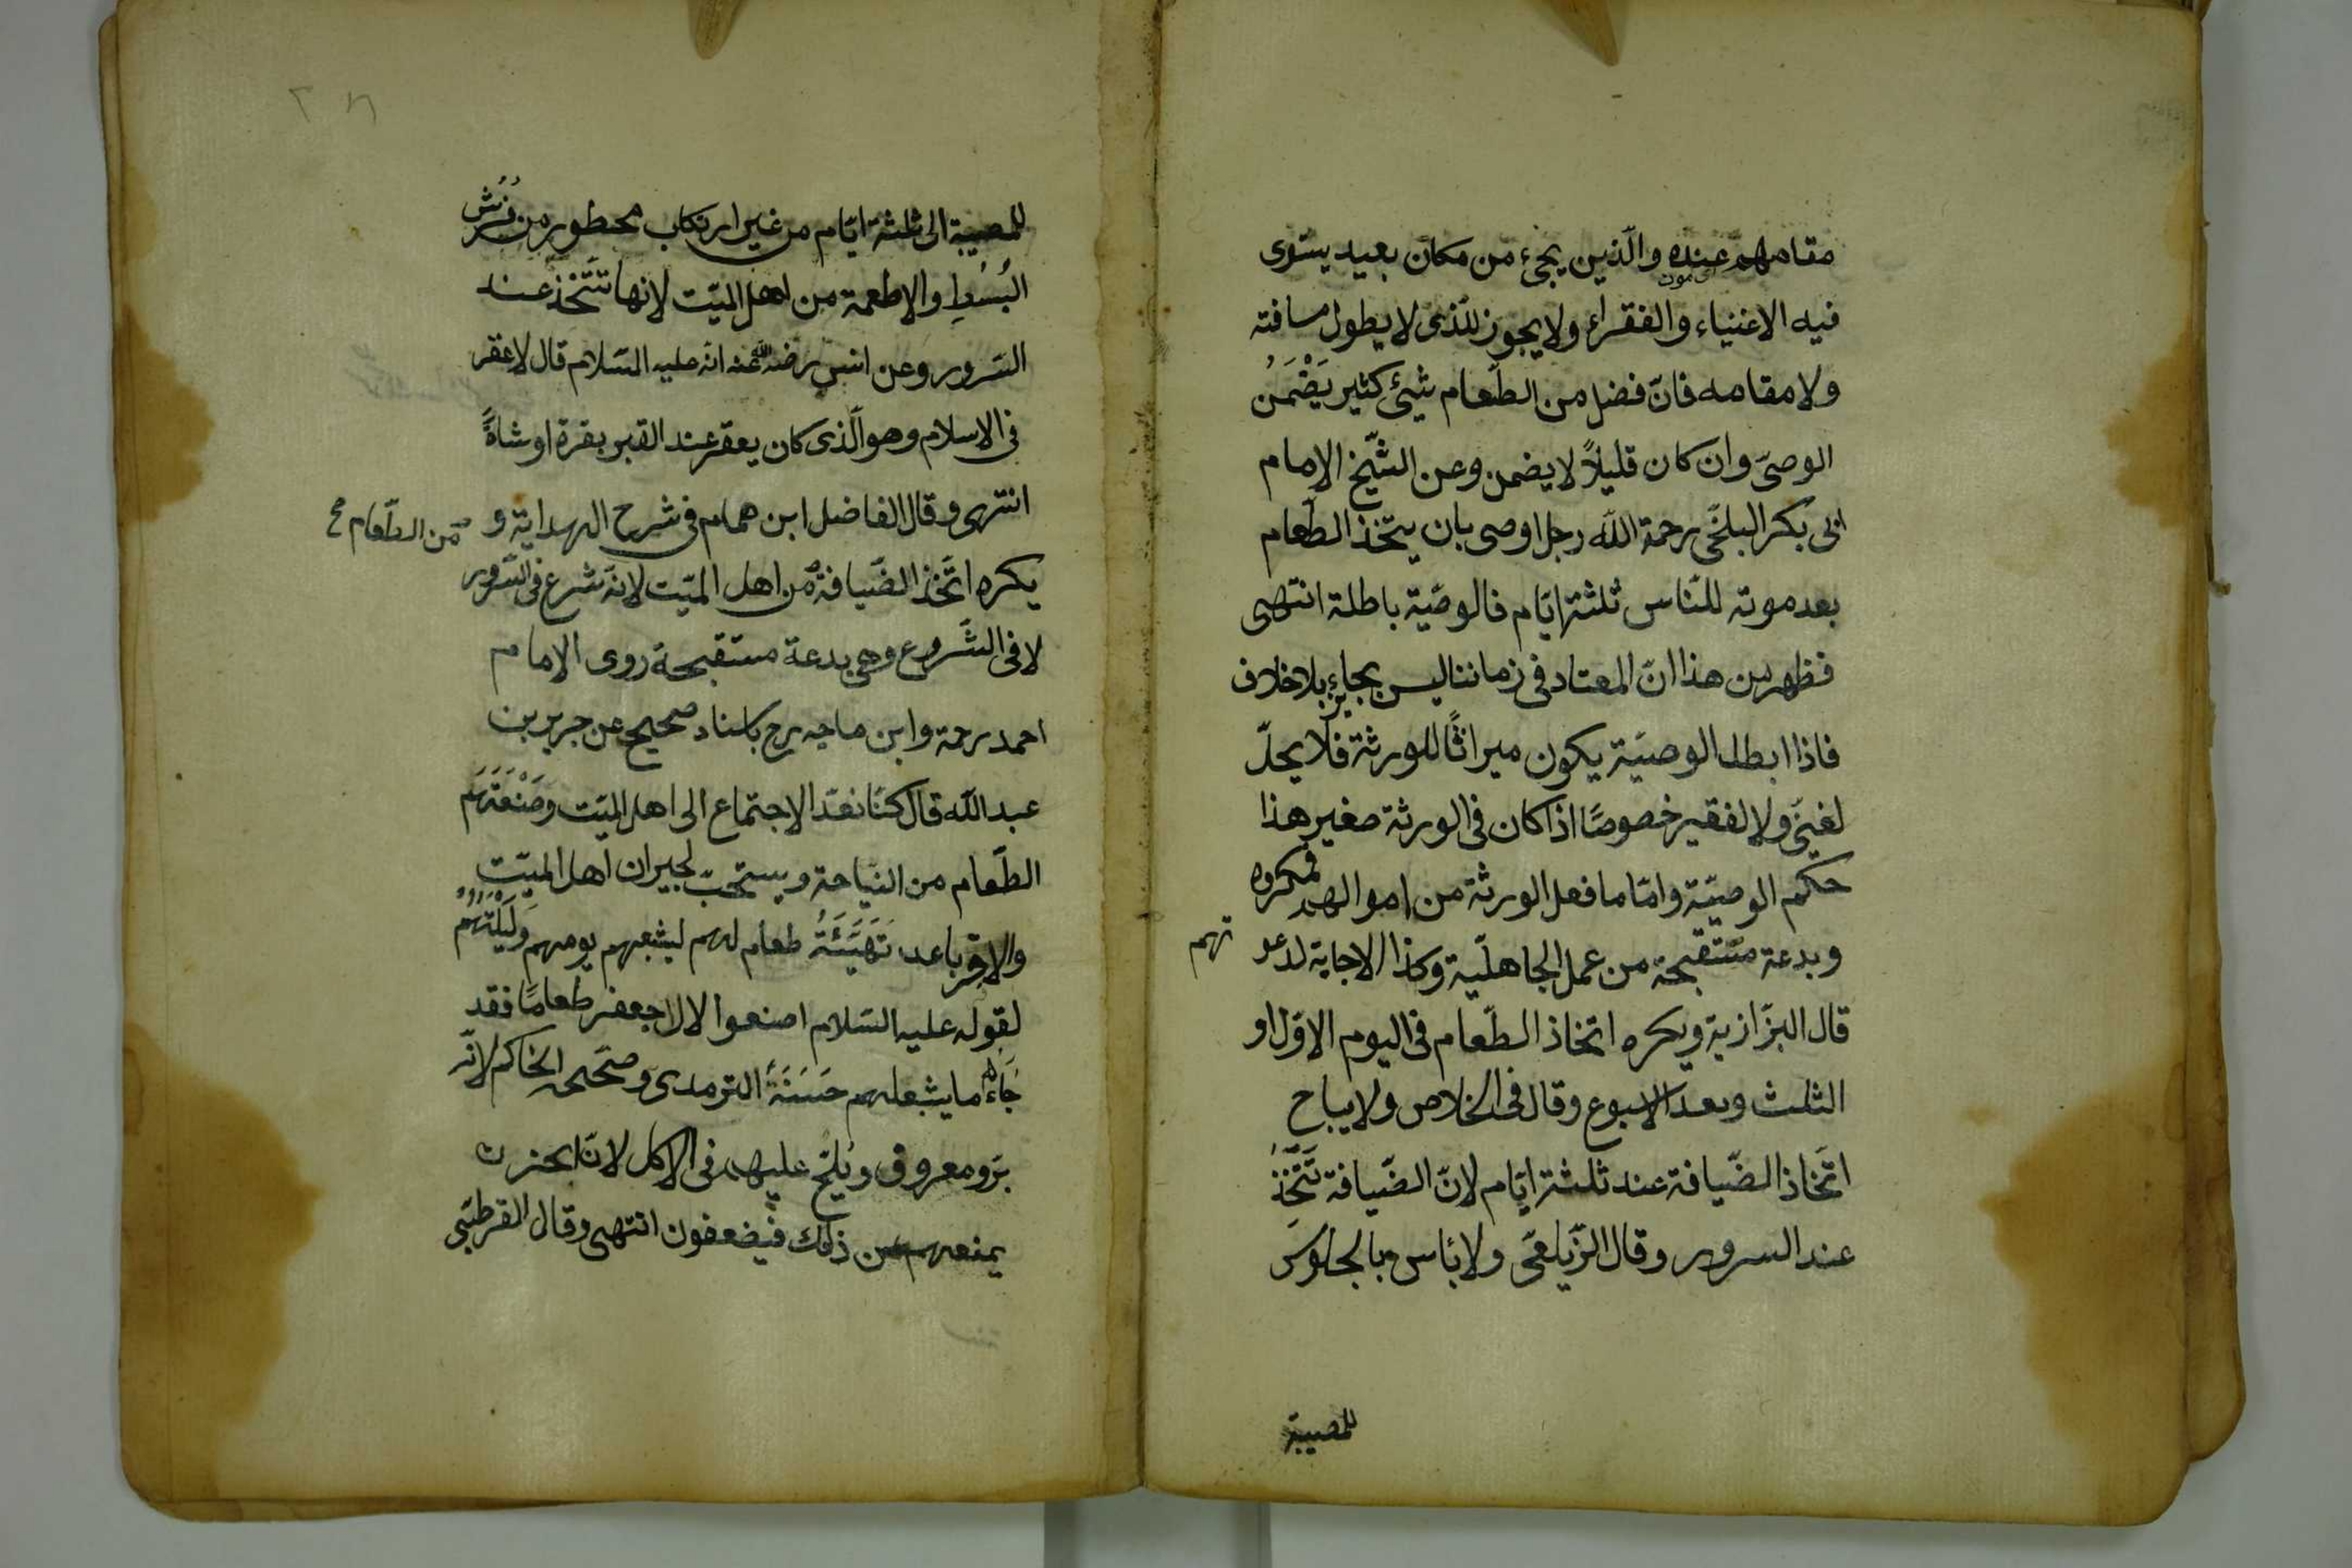 مقامهم عنده والّذين يجيء من مكان بعيد يستوى
موت
فيه الاغنياء والفقراء ولا يجوز للّذى لا يطول مسافته
ولا مقامه فانّ فضل من الطّعام شيئ كثير يَضْمَنُ
الوصىّ وان كان قليلاً لا يضمن وعن الشّيخ الامام
ابى بكر البلخّى رحمة اللّه رجل اوصى بان يتّخذ الطّعام
بعد موته للنّاس ثلثة ايّام فالوصّية باطلة انتهى
فظهر من هذا انّ المعتاد فى زماننا ليس بجايز بلا خلاف
فاذا ابطل الوصيّة يكون ميراثًا للورثة فلا يحلّ
لغنىّ ولا لفقير خصوصًا اذا كان فى الورثة صغير هذا
حكم الوصيّة وامّا ما فعل الورثة من اموالهم فمكروه
وبدعة مستقبحة من عمل الجاهليّة وكذا الاجابة لدعو
تهم
قال البزّازية ويكره اتخاذ الطّعام فى اليوم الاوّل او
الثلث وبعد الاسبوع وقال فى الخلاص ولا يباح
اتّخاذ الضّيافة عند ثلثة ايّام لانّ الضّيافة تتّخذُ
عند السرور وقال الزّيلعىّ ولا بٔاس بالجلوس
للمصيبة
للمصيبة الى ثلثة ايّام من غير ارتكاب محظور من فُرُش
البُسُطِ والاطعمة من اهل الميّت لانها تتّخذ عند
السّرور وعن انس رضى الله عنه انّه عليه السّلام قال لا عقر
فى الاسلام وهو الّذى كان يعقر عند القبر بقرة او شاةً
انتهى وقال الفاضل ابن همام فى شرح الهداية و
من الطّعام صح
يكره اتّخذ الضّيافة من اهل الميّت لانّه شرع فى السّرور
لا فى الشّروع وهى بدعة مستقبحة روى الامام
احمد رحمة وابن ماجه رح باسناد صحيح عن جرير بن
عبد اللّه قال كنّا نعّد الاجتماع الى اهل الميّت وصَنْعَتَهَم
الطّعام من النّياحة ويستحبّ لجيران اهل الميّت
والاقرباعد تَهَيَّئَةُ طعام لهم ليشبعهم يومهم وَلَيْلَتُهُمْ
لقوله عليه السّلام اصنعوا لال جعفر طعامًا فقد
جَاءَهُم ما يشغلهم حَسَنَةٌ الترمدى وصحّحه الحاكم لانّه
برّ ومعروف ويُلحّ عليهم فى الاكل لانّ الحزن
يمنعهم من ذلك فيضعفون انتهى وقال القرطبّى